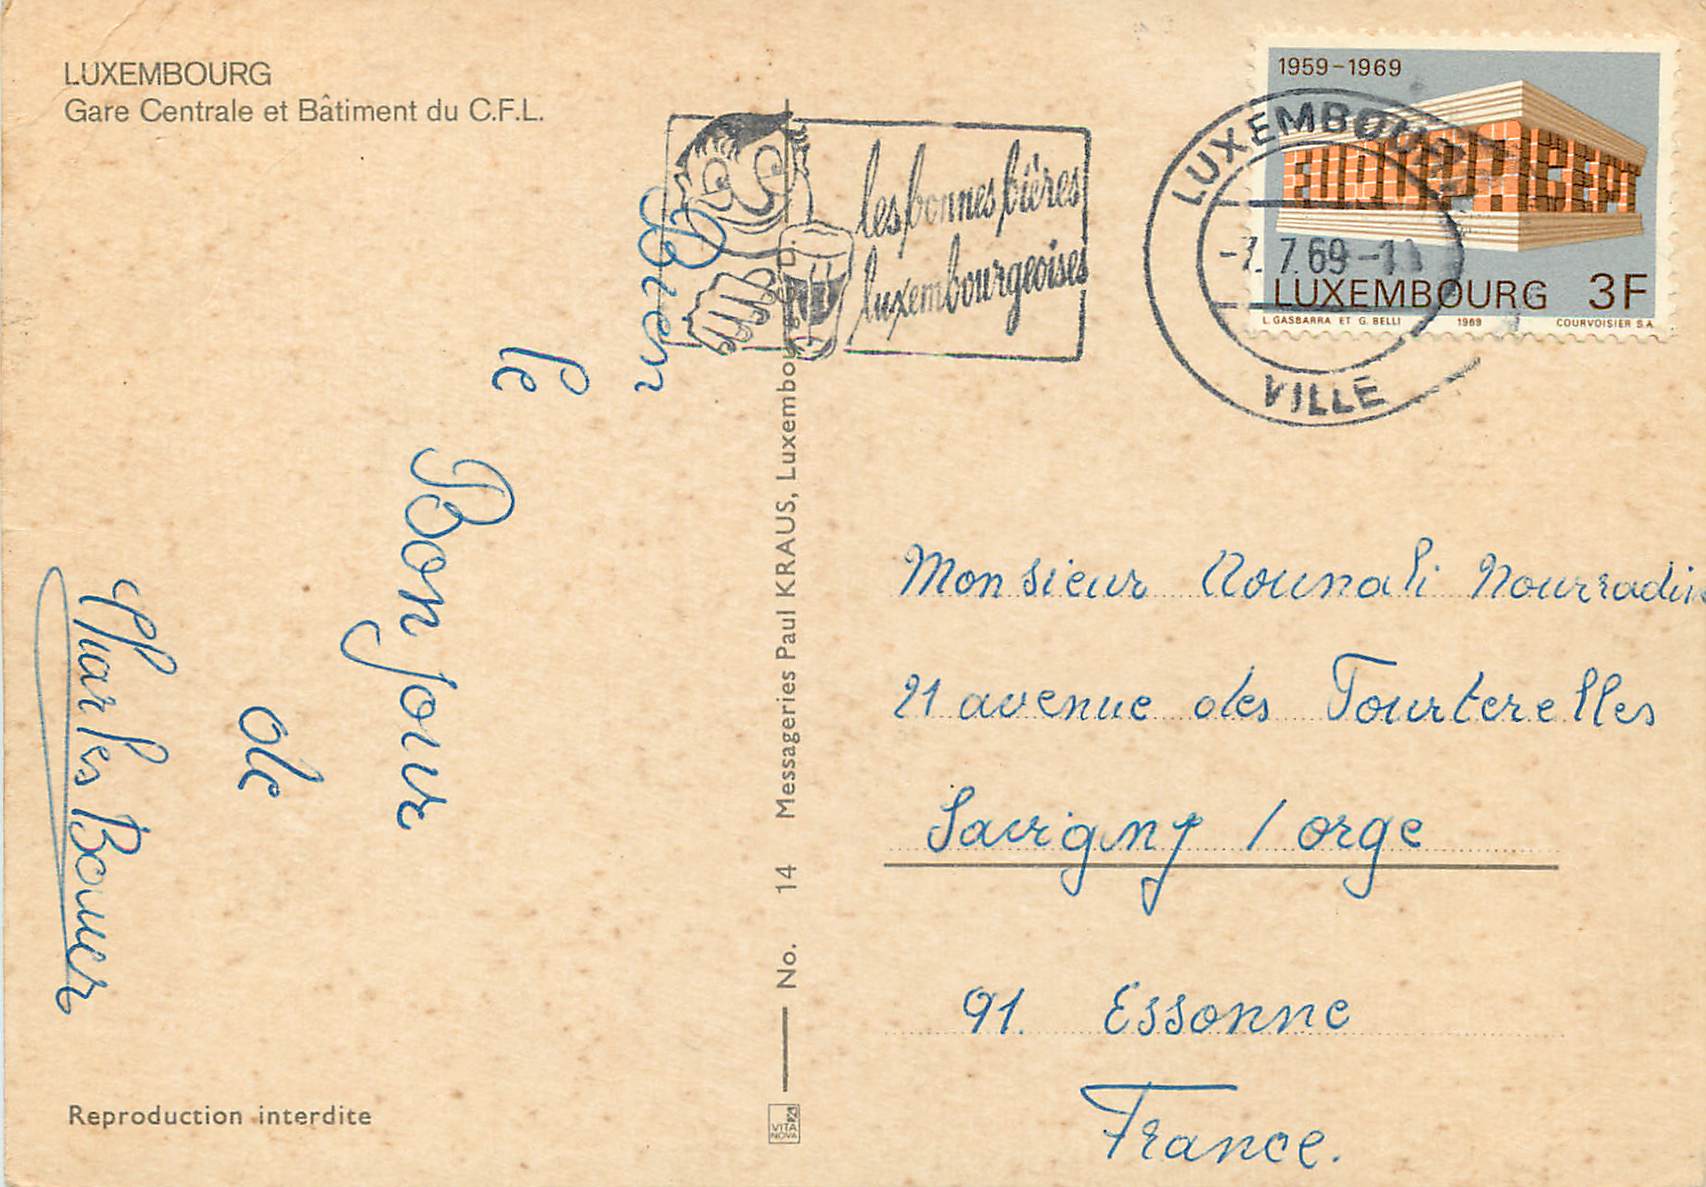 LUXEMBOURG
Gare Centrale et Bâtiment du C.F.L.
1959-1969
EUROPA CEPT
LUXEMBOURG 3F
L. GASBARRA ET G. BELLI 1969 COURVOISIER S.A.
LUXEMBOURG
-7.7.69-
VILLE
les bonnes bières
luxembourgeoises
Bien
le
Bonjour
de
Charles Bouer
No. 14 Messageries Paul KRAUS, Luxembourg
Monsieur Nourradin
21 avenue des Tourterelles
Savigny / orge
91. Essonne
France.
Reproduction interdite
VITA
NOVA